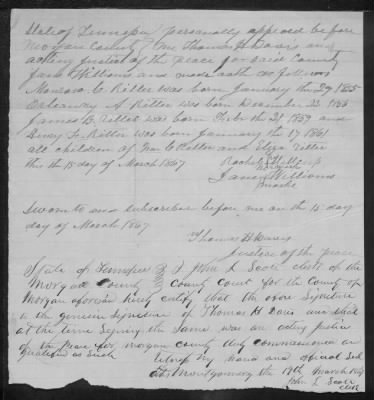 State of Tennessee personally appeared before
Morgan County me Thomas H Davis and
acting Justice of the peace for said County
Jane Williams and made oath as follows
C. Ritter was born January the 29 1855
A Ritter was born December 23 1856
James B. Ritter was born Feb the 21 1859 and
Ritter was born January the 17 1861
all children of Wm C Ritter and Eliza Ritter
this the 15 day of March 1867
Rachel
Jane Williams
marke
Sworn to and subscribed before me on the 15 day
day of March 1867
Thomas H Davis
Justice of the peace
State of Tennessee I John L Scott clerk of the
Morgan County County court for the County of
Morgan aforesaid hereby certify that the above Signature
is the genuine Signature of Thomas H Davis and that
at the time Signing the Same was an acting Justice
of the Peace for Morgan County duly commissioned and
qualified as Such
my hand and official Seal
Montgomery the 19th March 1867
John L Scott
clerk